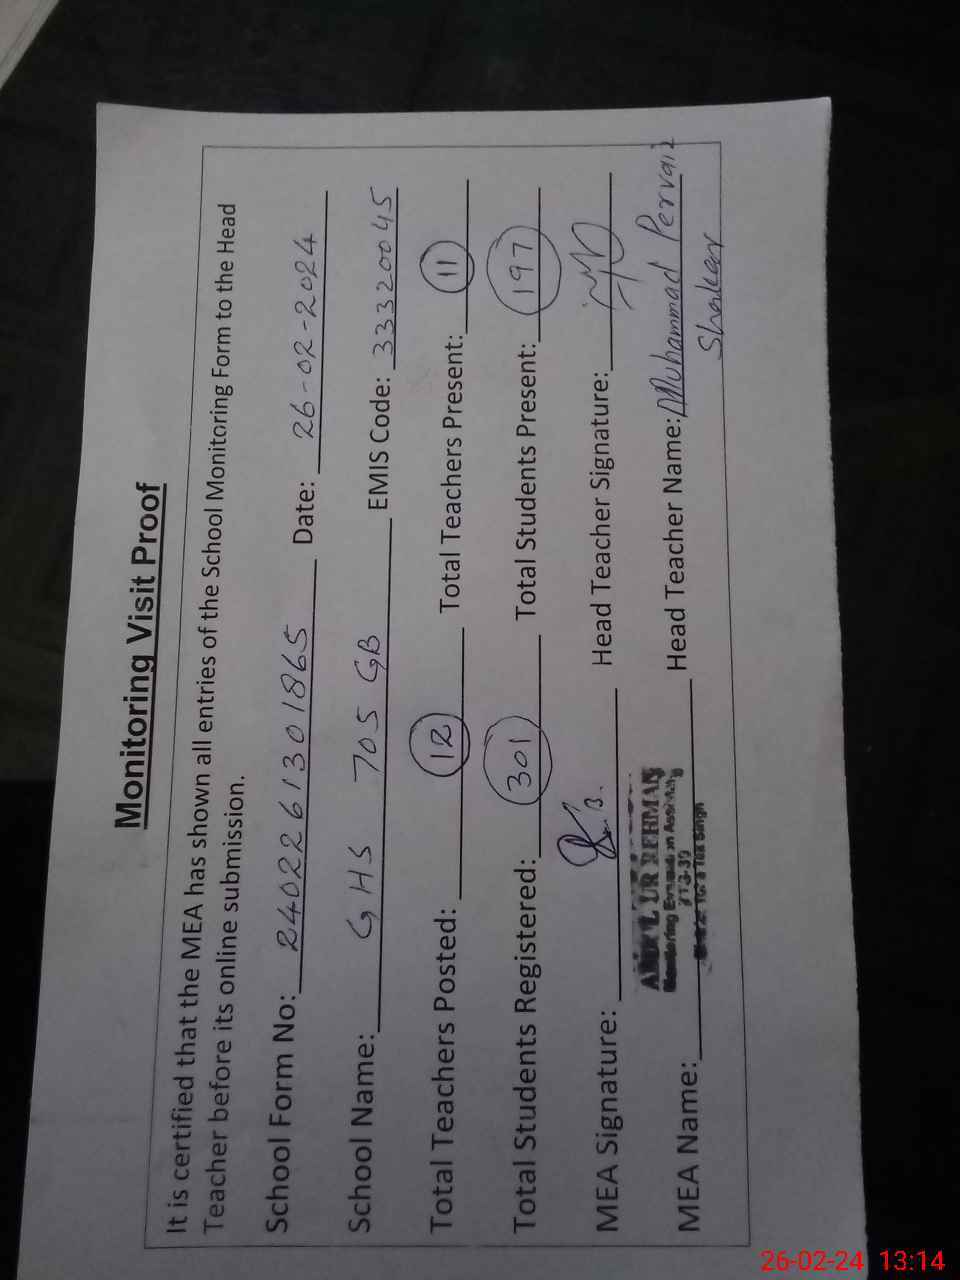 Monitoring Visit Proof
It is certified that the MEA has shown all entries of the School Monitoring Form to the Head
Teacher before its online submission.
School Form No: 2402261301865 Date: 26-02-2024
School Name: GHS 705 GB EMIS Code: 33320045
Total Teachers Posted: 12 Total Teachers Present: 11
Total Students Registered: 301 Total Students Present: 197
MEA Signature: Head Teacher Signature:
UR REHMAN
MEA Name: Head Teacher Name: Muhammad Pervaiz
26-02-24 13:14